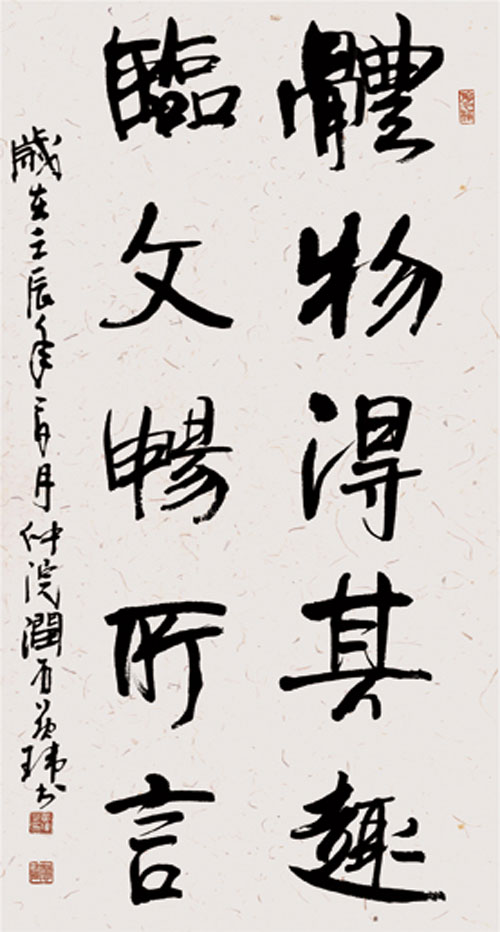 體物得其趣
臨文暢所言
歲在壬辰年 月仲浣潤石 瑋書